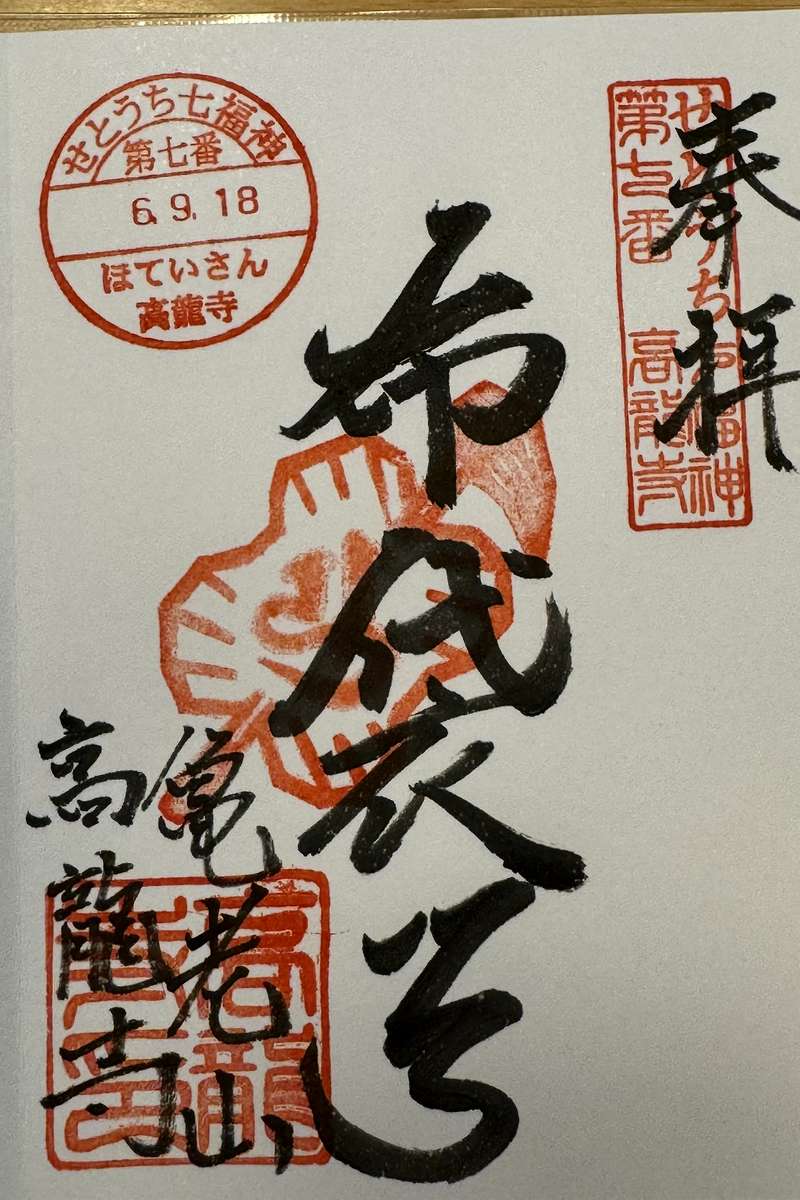 奉拝
せとうち七福神
第七番 高龍寺
布袋尊
亀老山
高龍寺
せとうち七福神
第七番
6.9.18
ほていさん
高龍寺
高龍寺印